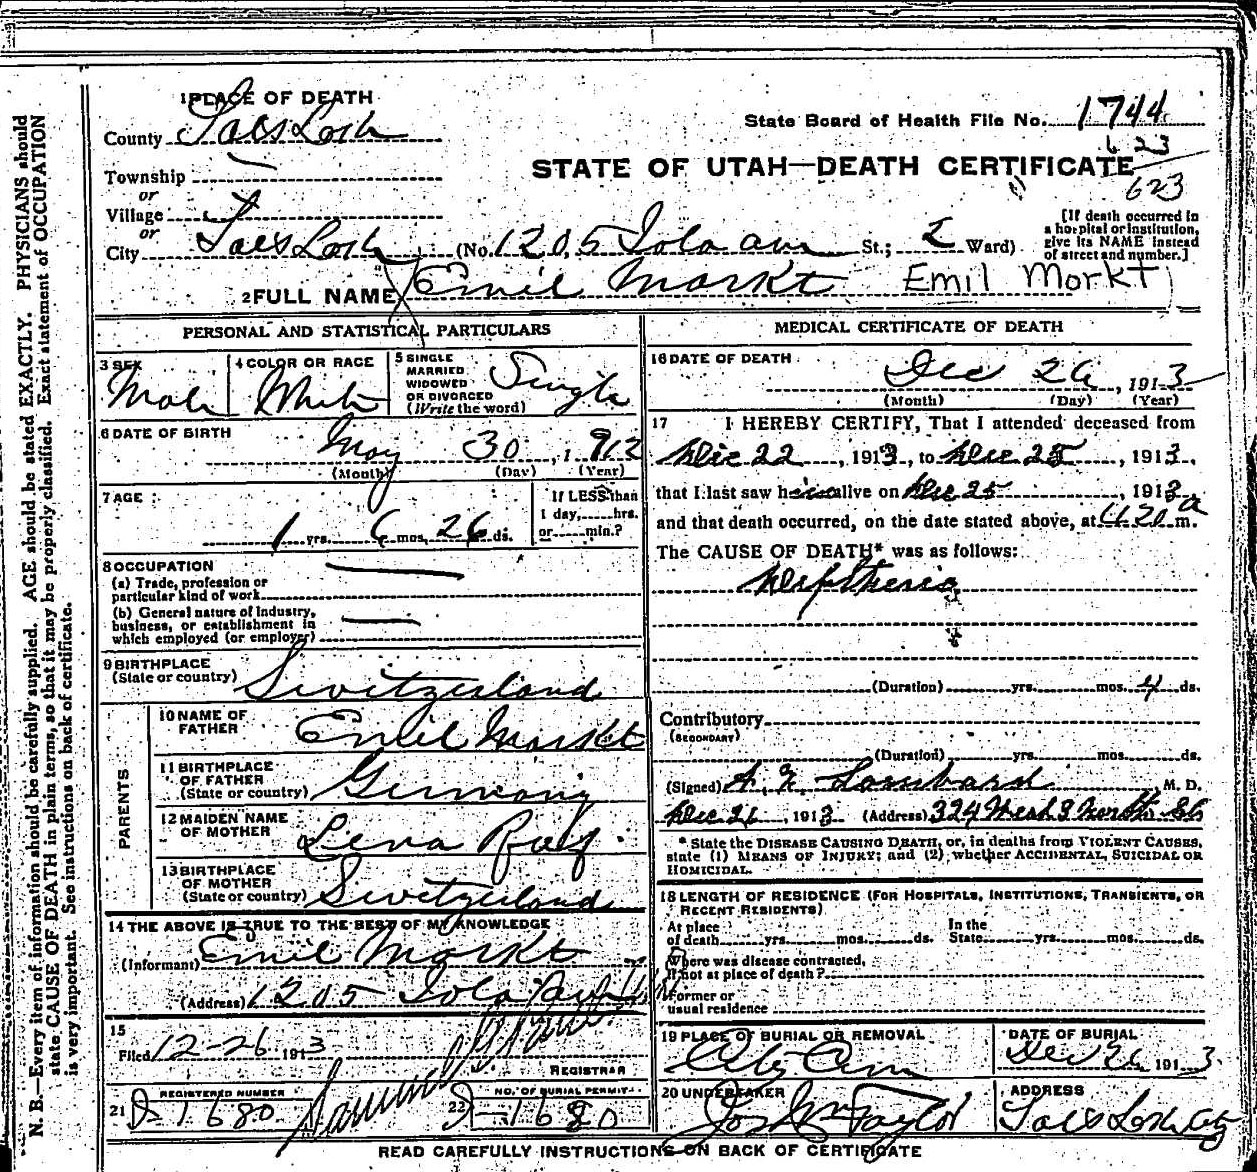 1 PLACE OF DEATH
County Salt Lake
State Board of Health File No. 1744
623
Township —
STATE OF UTAH—DEATH CERTIFICATE
623
or
Village
or
City Salt Lake (No. 1205 Iola Ave St.; 2 Ward)
[If death occurred in
a hospital or institution,
give its NAME instead
of street and number.]
2 FULL NAME Emil Markt Emil Morkt
PERSONAL AND STATISTICAL PARTICULARS
3 SEX
Male
4 COLOR OR RACE
White
5 SINGLE
MARRIED
WIDOWED
OR DIVORCED
(Write the word)
Single
6 DATE OF BIRTH
May 30, 1912
(Month) (Day) (Year)
7 AGE
1 yrs. 6 mos. 26 ds.
If LESS than
1 day, hrs.
or min.?
8 OCCUPATION
(a) Trade, profession or
particular kind of work
(b) General nature of industry,
business, or establishment in
which employed (or employer)
9 BIRTHPLACE
(State or country) Switzerland
PARENTS
10 NAME OF
FATHER Emil Markt
11 BIRTHPLACE
OF FATHER
(State or country) Germany
12 MAIDEN NAME
OF MOTHER Lena
13 BIRTHPLACE
OF MOTHER
(State or country) Switzerland
14 THE ABOVE IS TRUE TO THE BEST OF MY KNOWLEDGE
(Informant) Emil Markt
(Address) 1205 Iola Ave
15
Filed 12-26 1913
REGISTRAR
REGISTERED NUMBER
21 1680
NO. OF BURIAL PERMIT
22 1680
MEDICAL CERTIFICATE OF DEATH
16 DATE OF DEATH
Dec 26, 1913
(Month) (Day) (Year)
17 I HEREBY CERTIFY, That I attended deceased from
Dec 22, 1913, to Dec 25, 1913,
that I last saw him alive on Dec 25, 1913
and that death occurred, on the date stated above, at 4.20 a m.
The CAUSE OF DEATH* was as follows:
Diptheria
(Duration) yrs. mos. 4 ds.
Contributory
(SECONDARY)
(Duration) yrs. mos. ds.
(Signed) Lombard M. D.
Dec 26, 1913 (Address) 324 West 3 North St
* State the DISEASE CAUSING DEATH, or, in deaths from VIOLENT CAUSES,
state (1) MEANS OF INJURY; and (2) whether ACCIDENTAL, SUICIDAL OR
HOMICIDAL.
18 LENGTH OF RESIDENCE (FOR HOSPITALS, INSTITUTIONS, TRANSIENTS, OR
RECENT RESIDENTS)
At place
of death yrs. mos. ds.
In the
State yrs. mos. ds.
Where was disease contracted,
if not at place of death?
Former or
usual residence
19 PLACE OF BURIAL OR REMOVAL
City Cem
DATE OF BURIAL
Dec 26 1913.
20 UNDERTAKER
Jos Wm Taylor
ADDRESS
Salt Lake City
READ CAREFULLY INSTRUCTIONS ON BACK OF CERTIFICATE
N. B.—Every item of information should be carefully supplied. AGE should be stated EXACTLY. PHYSICIANS should
state CAUSE OF DEATH in plain terms, so that it may be properly classified. Exact statement of OCCUPATION
is very important. See instructions on back of certificate.